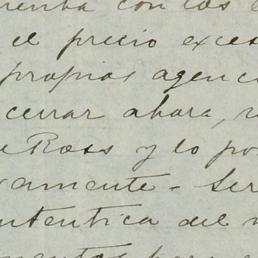 con los
el precio exces
propios agenc
cerrar ahora,
Ross y lo po
vamente - Ser
utentica del